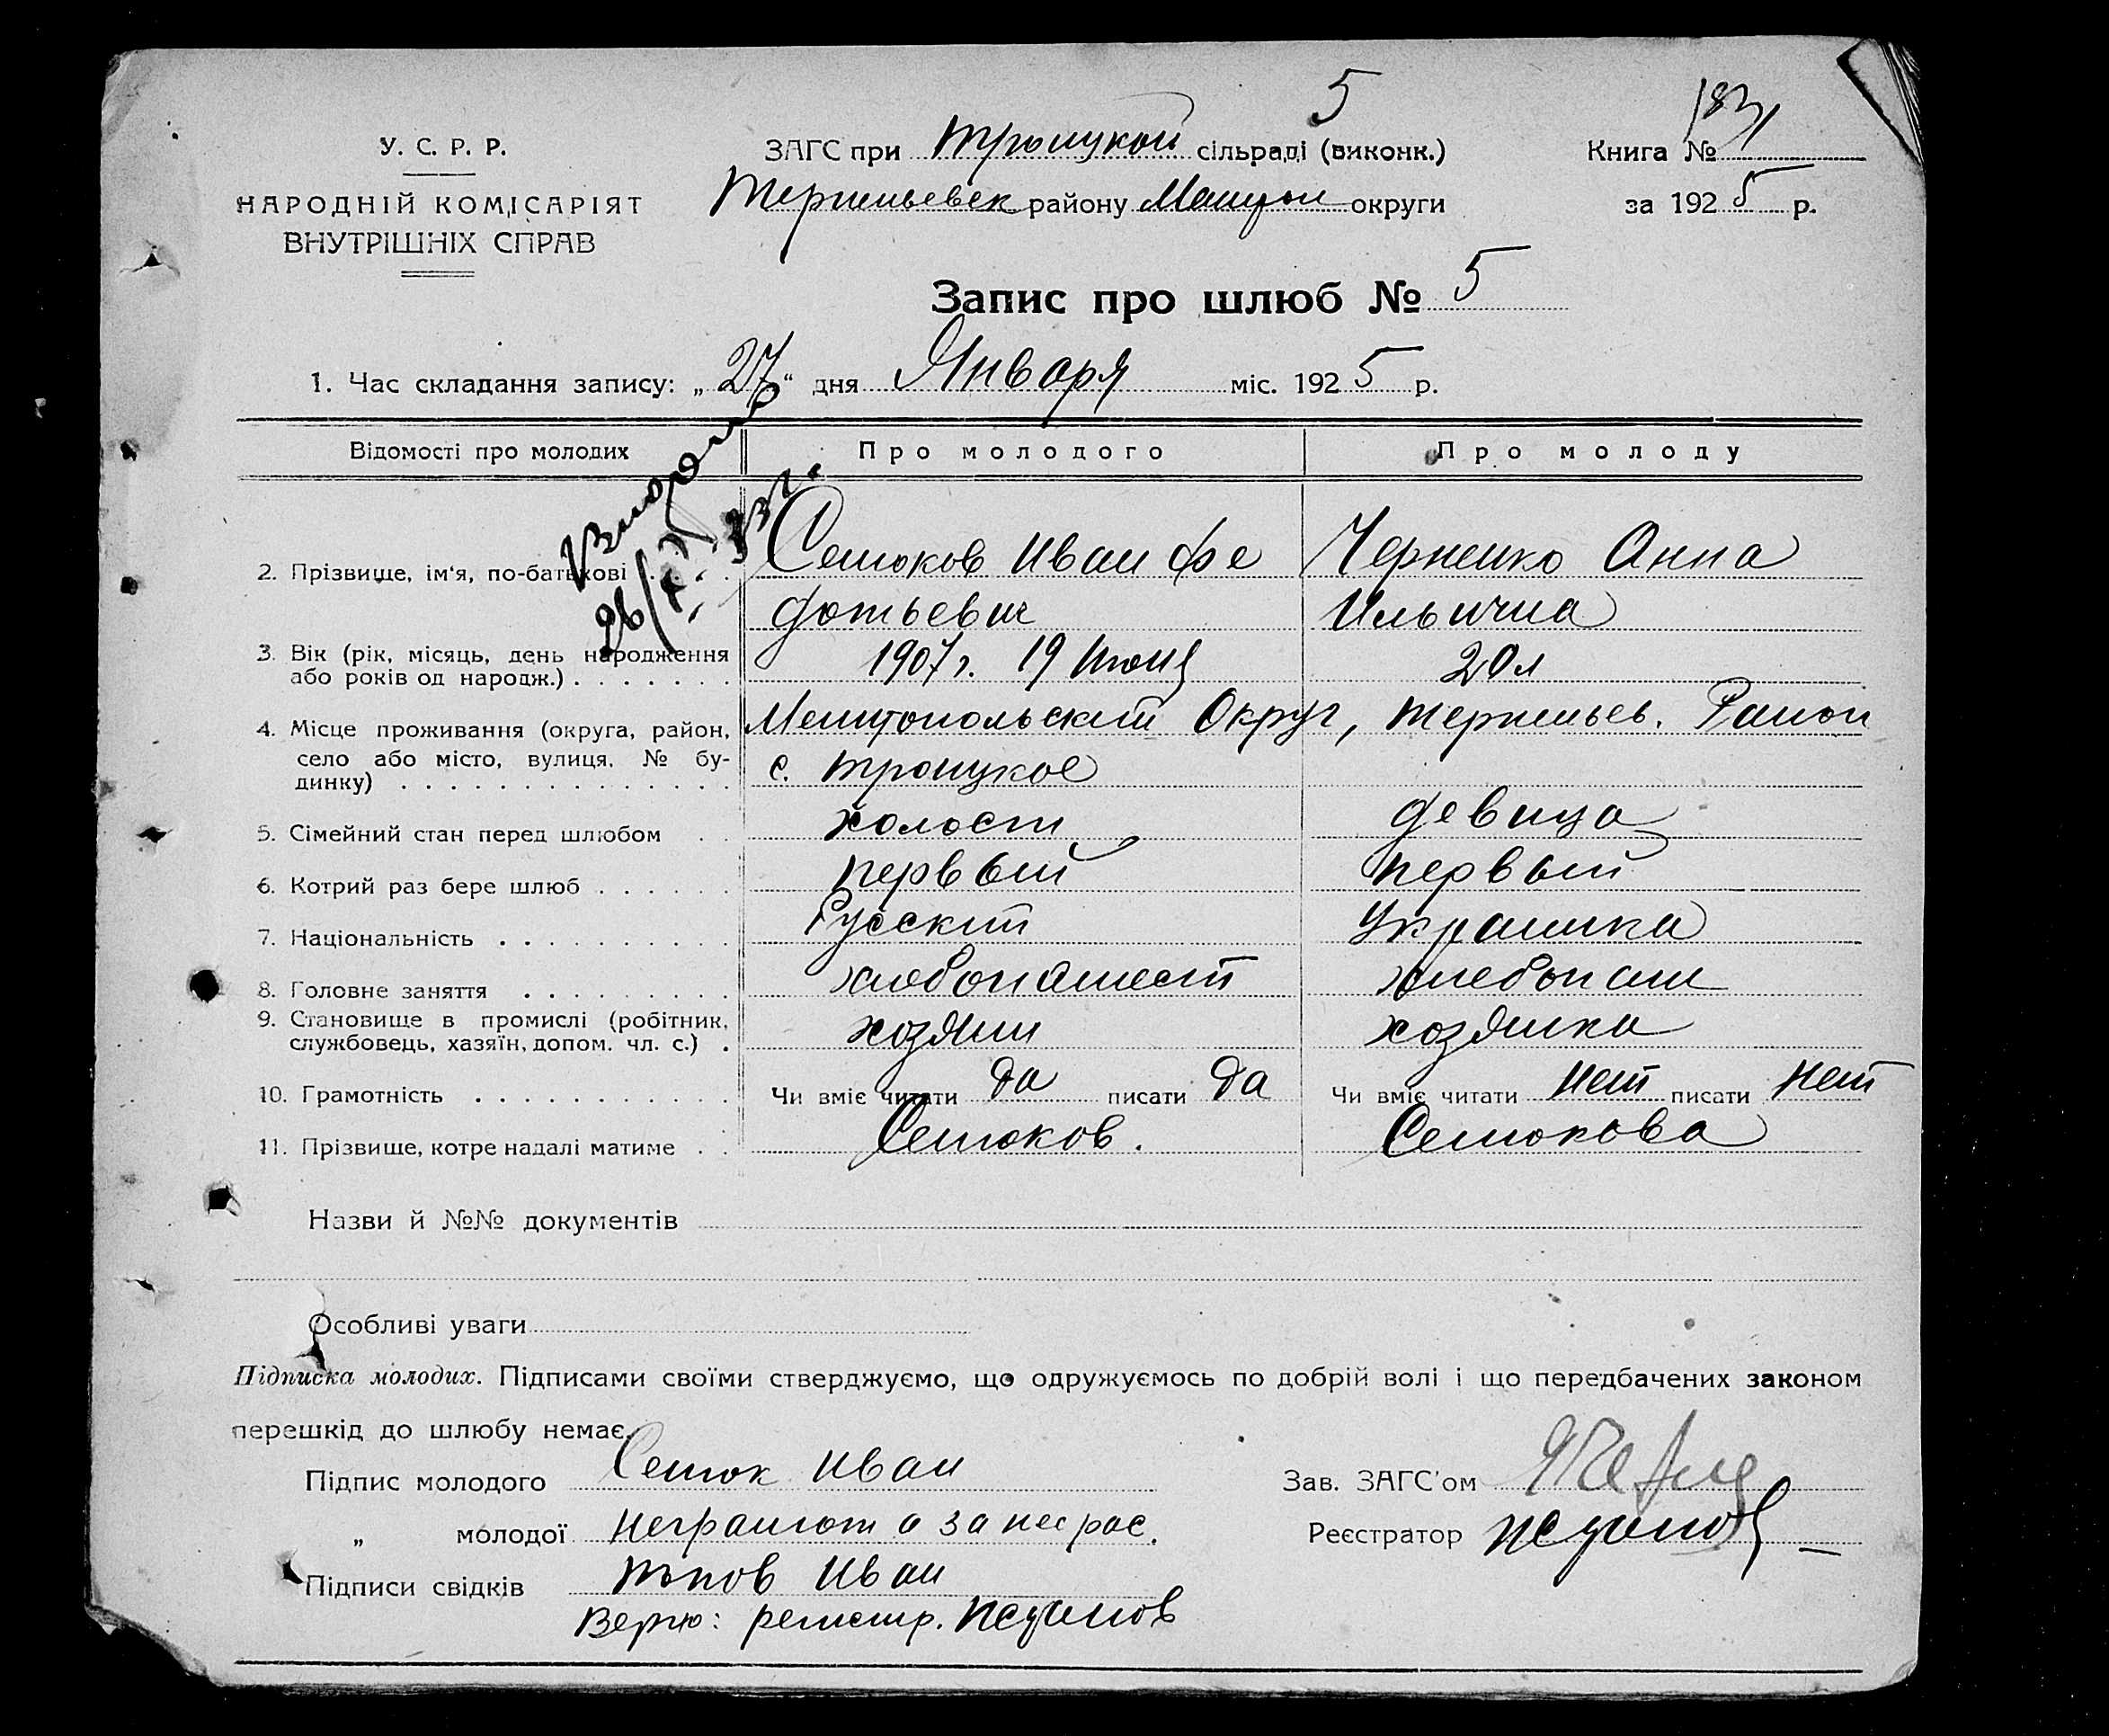 5
У. С. Р. Р.
НАРОДНІЙ КОМІСАРІЯТ
ВНУТРІШНІХ СПРАВ
ЗАГС при Троицкой сільраді (виконк.)
району округи
Книга №
за 1925 р.
Запис про шлюб № 5
1. Час складання запису: „27“ дня Января міс. 1925 р.
Відомості про молодих Про молодого Про молоду
2. Прізвище, ім‘я, по-батькові . . . Семоков Иван Фе Черненко Анна
дотьевич Ильична
3. Вік (рік, місяць, день народження 1907 г. 19 Июня 20 л
або років од народж.) . . . . . . .
4. Місце проживання (округа, район, Округ, Район
село або місто, вулиця, № бу- с. Троицкое
динку) . . . . . . . . . . . . . .
5. Сімейний стан перед шлюбом . . холост девица
6. Котрий раз бере шлюб . . . . . . первый первый
7. Національність . . . . . . . . . . Русский Украинка
8. Головне заняття . . . . . . . . .
9. Становище в промислі (робітник, хозяин хозяйка
службовець, хазяїн, допом. чл. с.) .
10. Грамотність . . . . . . . . . . . Чи вміє читати да писати да Чи вміє читати нет писати нет
11. Прізвище, котре надалі матиме . . Семоков. Семокова
26/ 33 г.
Назви й №№ документів
Особливі уваги
Підписка молодих. Підписами своїми стверджуємо, що одружуємось по добрій волі і що передбачених законом
перешкід до шлюбу немає.
Підпис молодого Семок Иван
„ молодої неграмот а за нее рас.
Підписи свідків Иван
Зав. ЗАГС‘ом
Реєстратор
Верно: